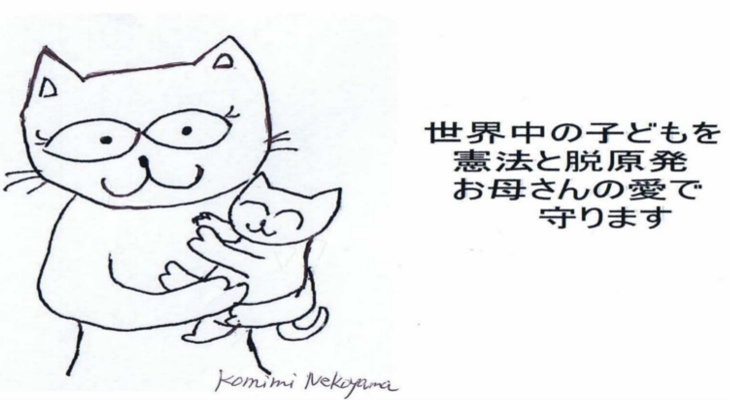 世界中の子どもを
憲法と脱原発
お母さんの愛で
守ります
Komimi Nekoyama